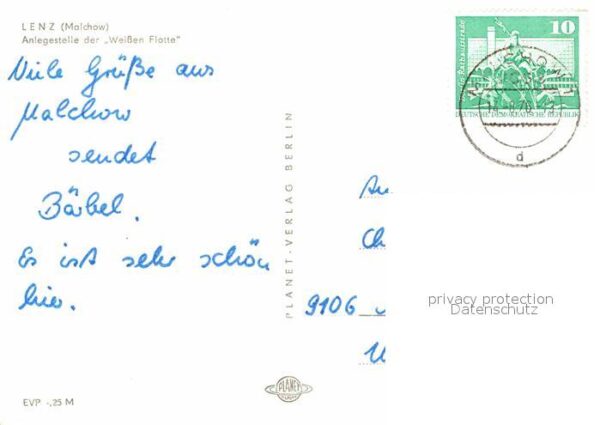 LENZ (Malchow)
Anlegestelle der „Weißen Flotte"
Viele Grüße aus
Malchow
sendet
Bärbel.
Es ist sehr schön
hier.
PLANET-VERLAG BERLIN
PLANET
EVP -,25 M
10
Rathausstraße
DEUTSCHE DEMOKRATISCHE REPUBLIK
d
An
Ch
9106
privacy protection
Datenschutz